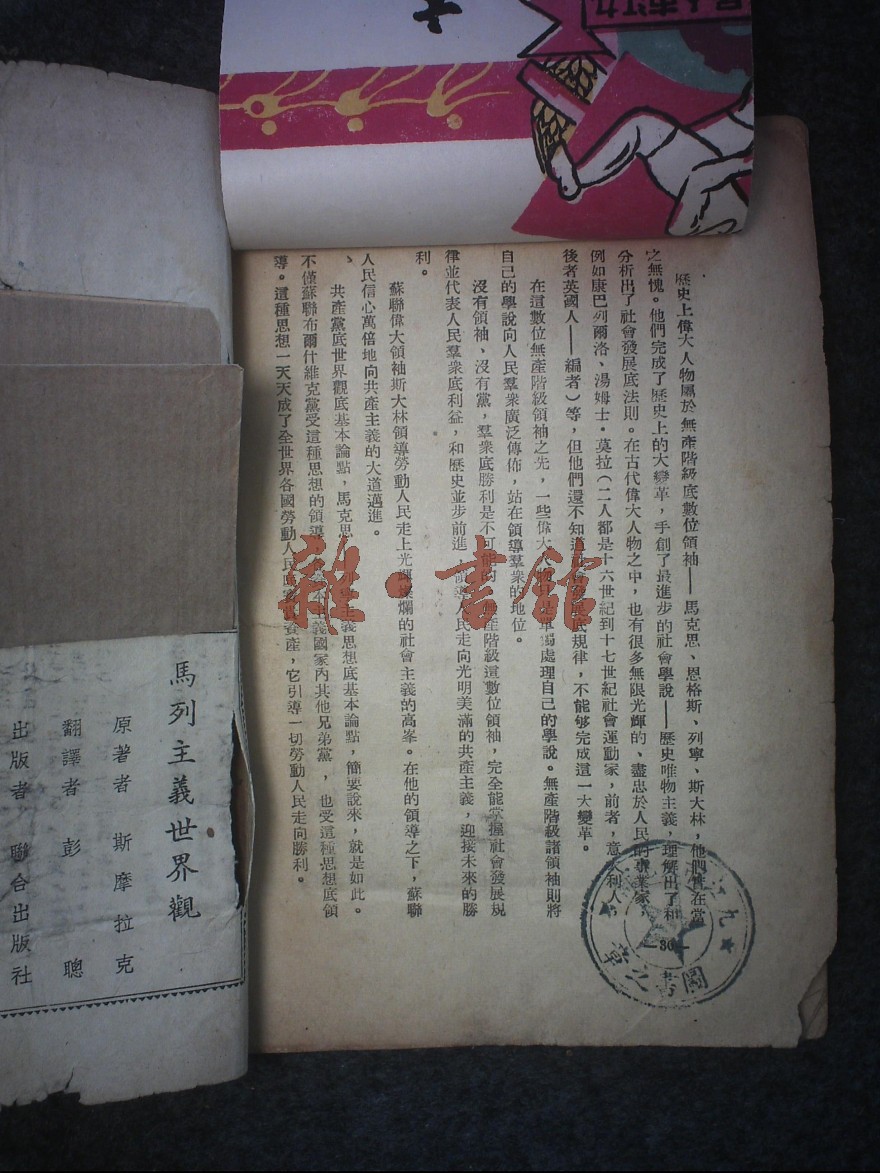 歷史上偉大人物屬於無產階級底數位領袖——馬克思、恩格斯、列寧、斯大林，他們皆在當
之無愧。他們完成了歷史上的大變革，手創了最進步的社會學說——歷史唯物主義，理解出了和
分析出了社會發展底法則。在古代偉大人物之中，也有很多無限光輝的、盡忠於人民的專業家，
例如康巴列爾洛、湯姆士·莫拉（二人都是十六世紀到十七世紀社會運動家，前者，意大利人，
後者英國人——編者）等，但他們還不知道社會發展底規律，不能够完成這一大變革。
在這數位無產階級領袖之先，一些偉大人物 單獨處理自己的學說。無產階級諸領袖則將
自己的學說向人民羣衆廣泛傳佈，站在領導羣衆的地位。
沒有領袖，沒有黨，羣衆底勝利是不可能的 無產階級這數位領袖，完全能掌握社會發展規
律並代表人民羣衆底利益，和歷史並步前進 領導人民走向光明美滿的共產主義，迎接未來的勝
利。
蘇聯偉大領袖斯大林領導勞動人民走上光輝燦爛的社會主義的高峯。在他的領導之下，蘇聯
人民信心萬倍地向共產主義的大道邁進。
共產黨底世界觀底基本論點，馬克思 主義思想底基本論點，簡要說來，就是如此。
不僅蘇聯布爾什維克黨受這種思想的領導 主義國家內其他兄弟黨，也受這種思想底領
導。這種思想一天天成了全世界各國勞動人民底 資產，它引導一切勞動人民走向勝利。
—80—
九江
圖書之章
雜·書館
馬列主義世界觀
原著者 斯摩拉克
翻譯者 彭聰
出版者 聯合出版社